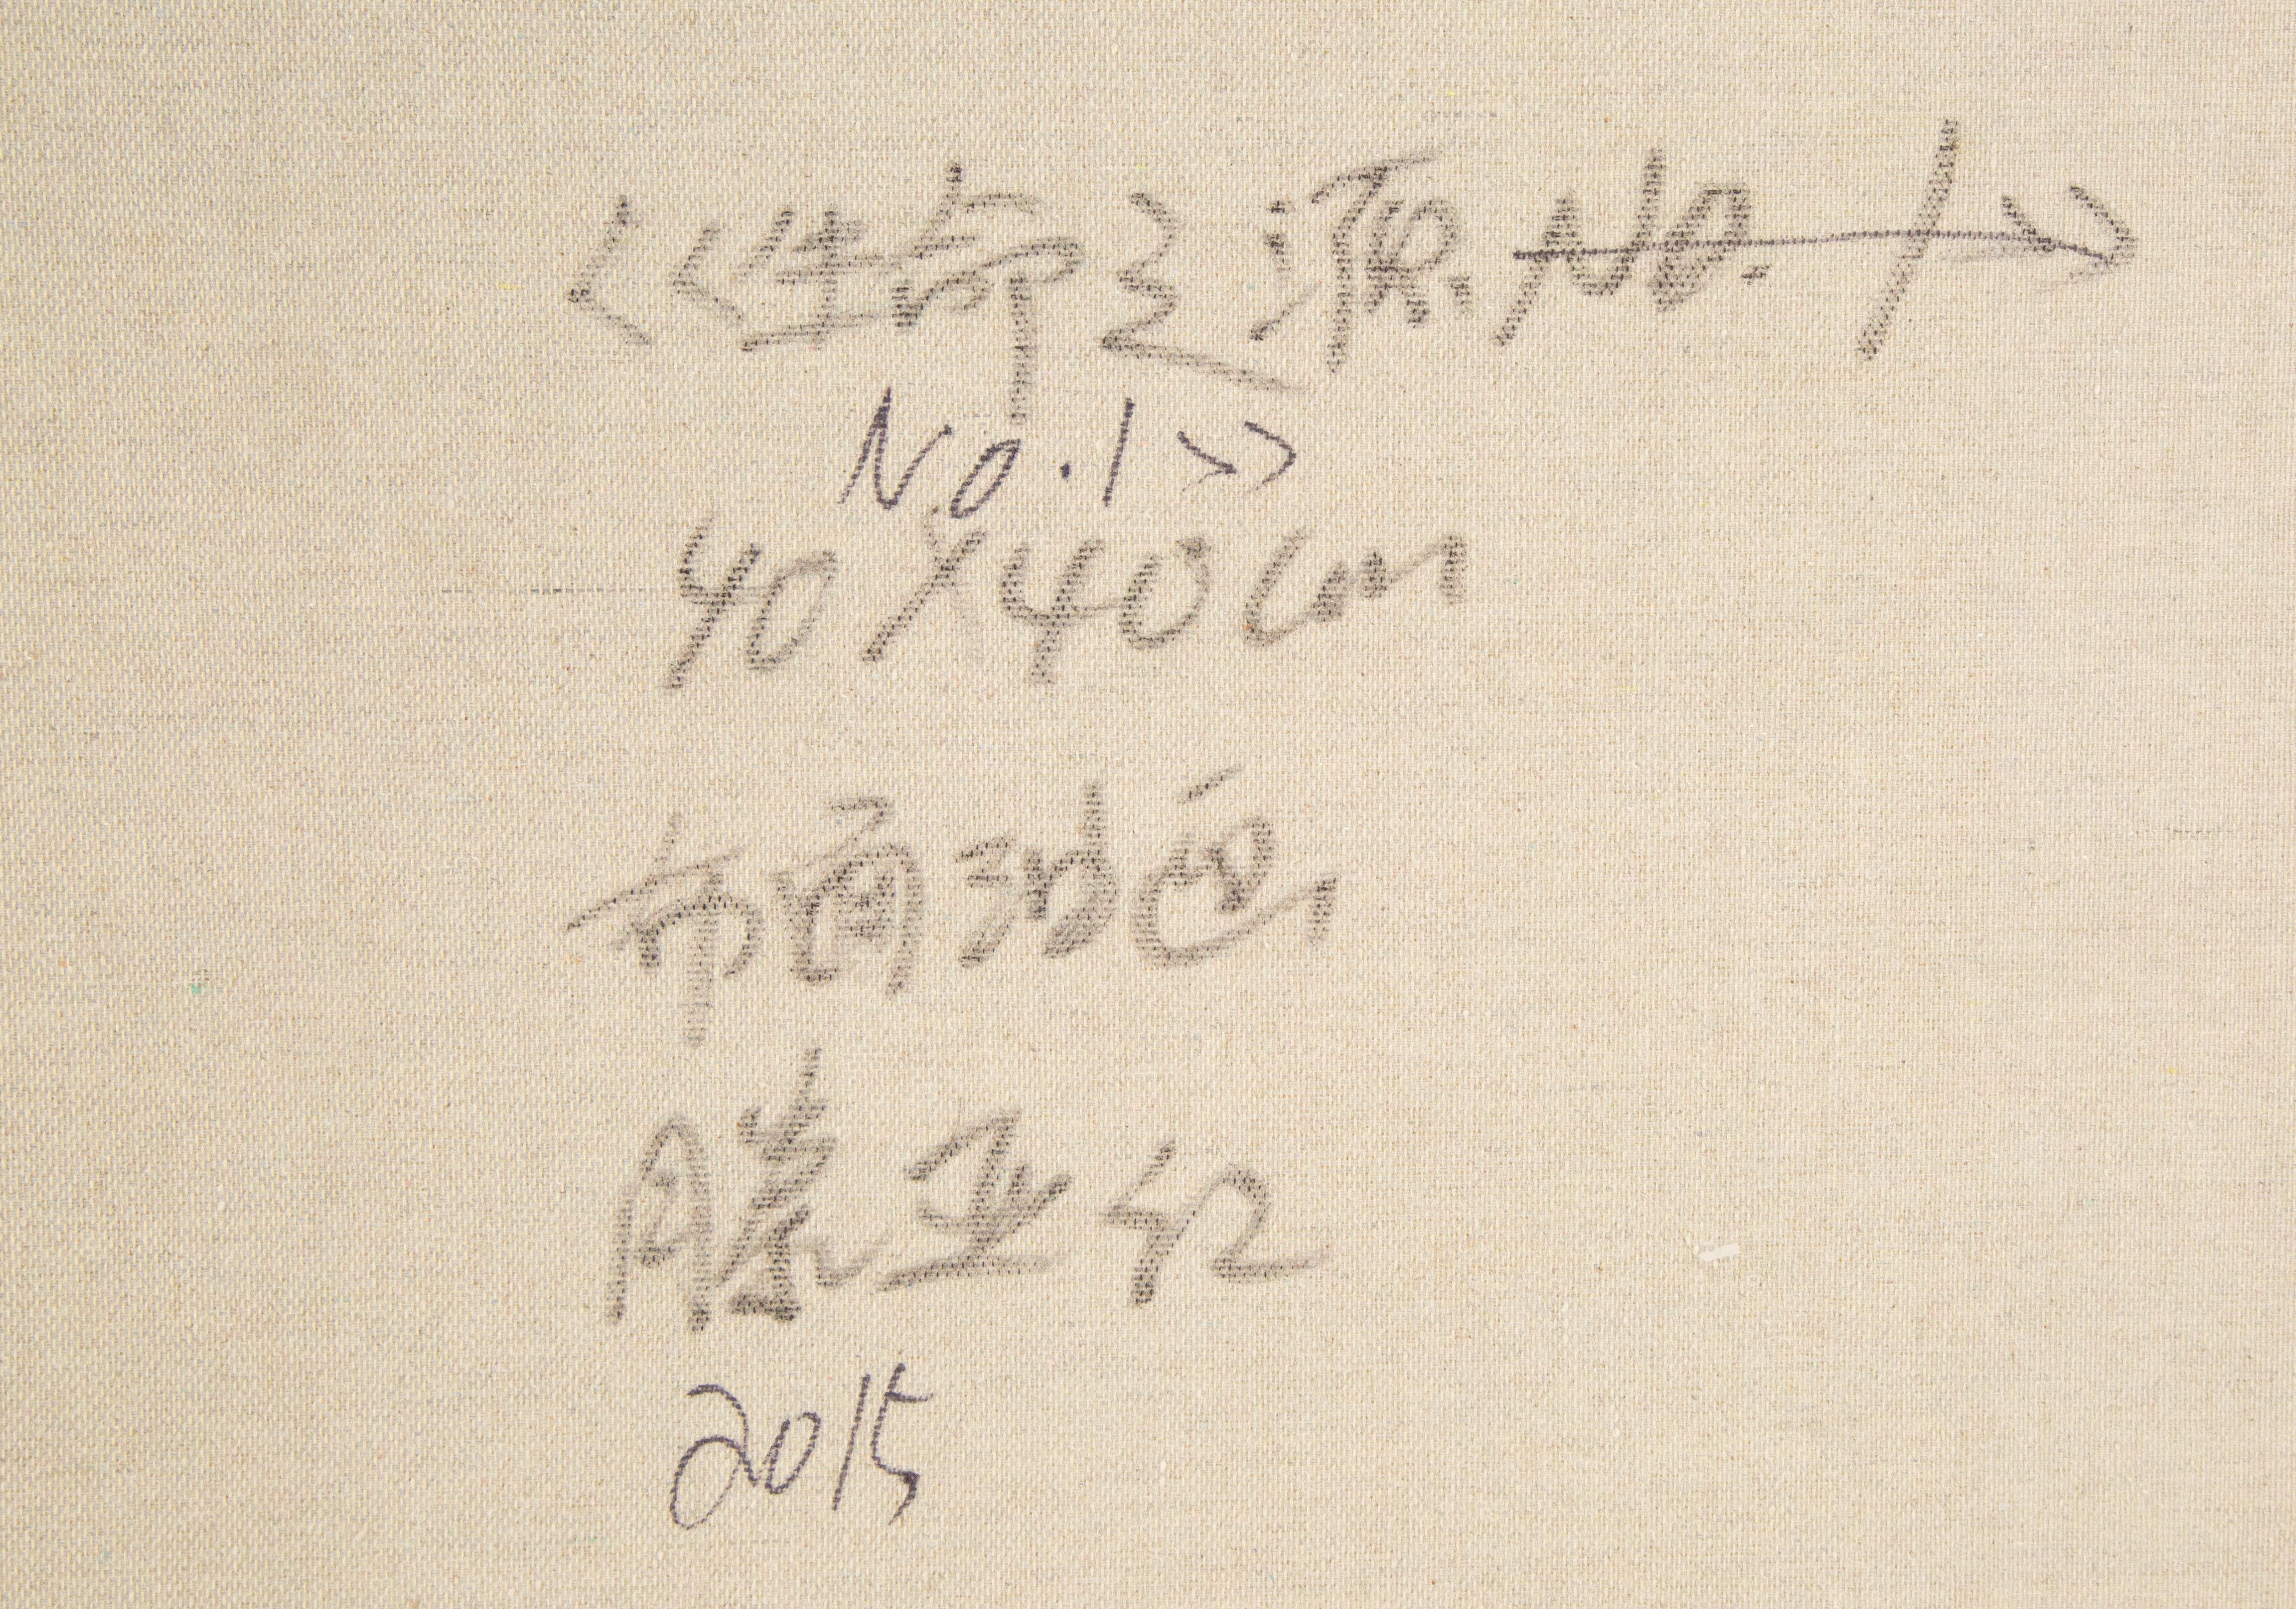 《生命之源 No.1》
No.1》
40X40cm
布面油画
滕亚红
2015